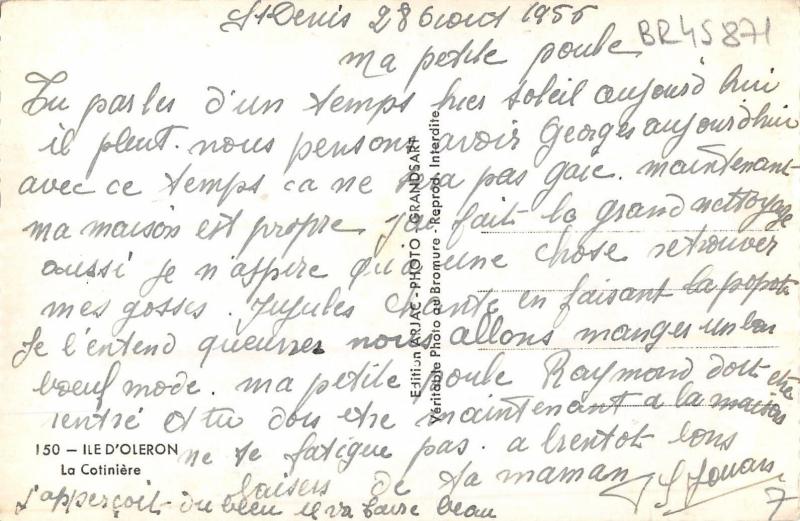 St Denis 28 aout 1955
BR45871
ma petite poule
Tu parles d'un temps hier soleil aujourd'hui
il pleut. nous pensons avoir Georges aujourdhui
avec ce temps ca ne sera pas gaie. maintenant
ma maison est propre J'ai fait la grand nettoyage
aussi je n'aspire qu'a une chose retrouver
mes gosses. Jujules chante en faisant la popote
Je l'entend nous allons manger un bon
boeuf mode. ma petite poule Raymond doit etre
rentré et tu dois etre maintenant a la maison
ne te fatigue pas. a bientot bons
baisers de ta maman
J'apperçoit du bleu il va faire beau
150 — ILE D'OLERON
La Cotinière
Edition ARJAC - PHOTO GRANDSART
Véritable Photo au Bromure - Reprod. Interdite